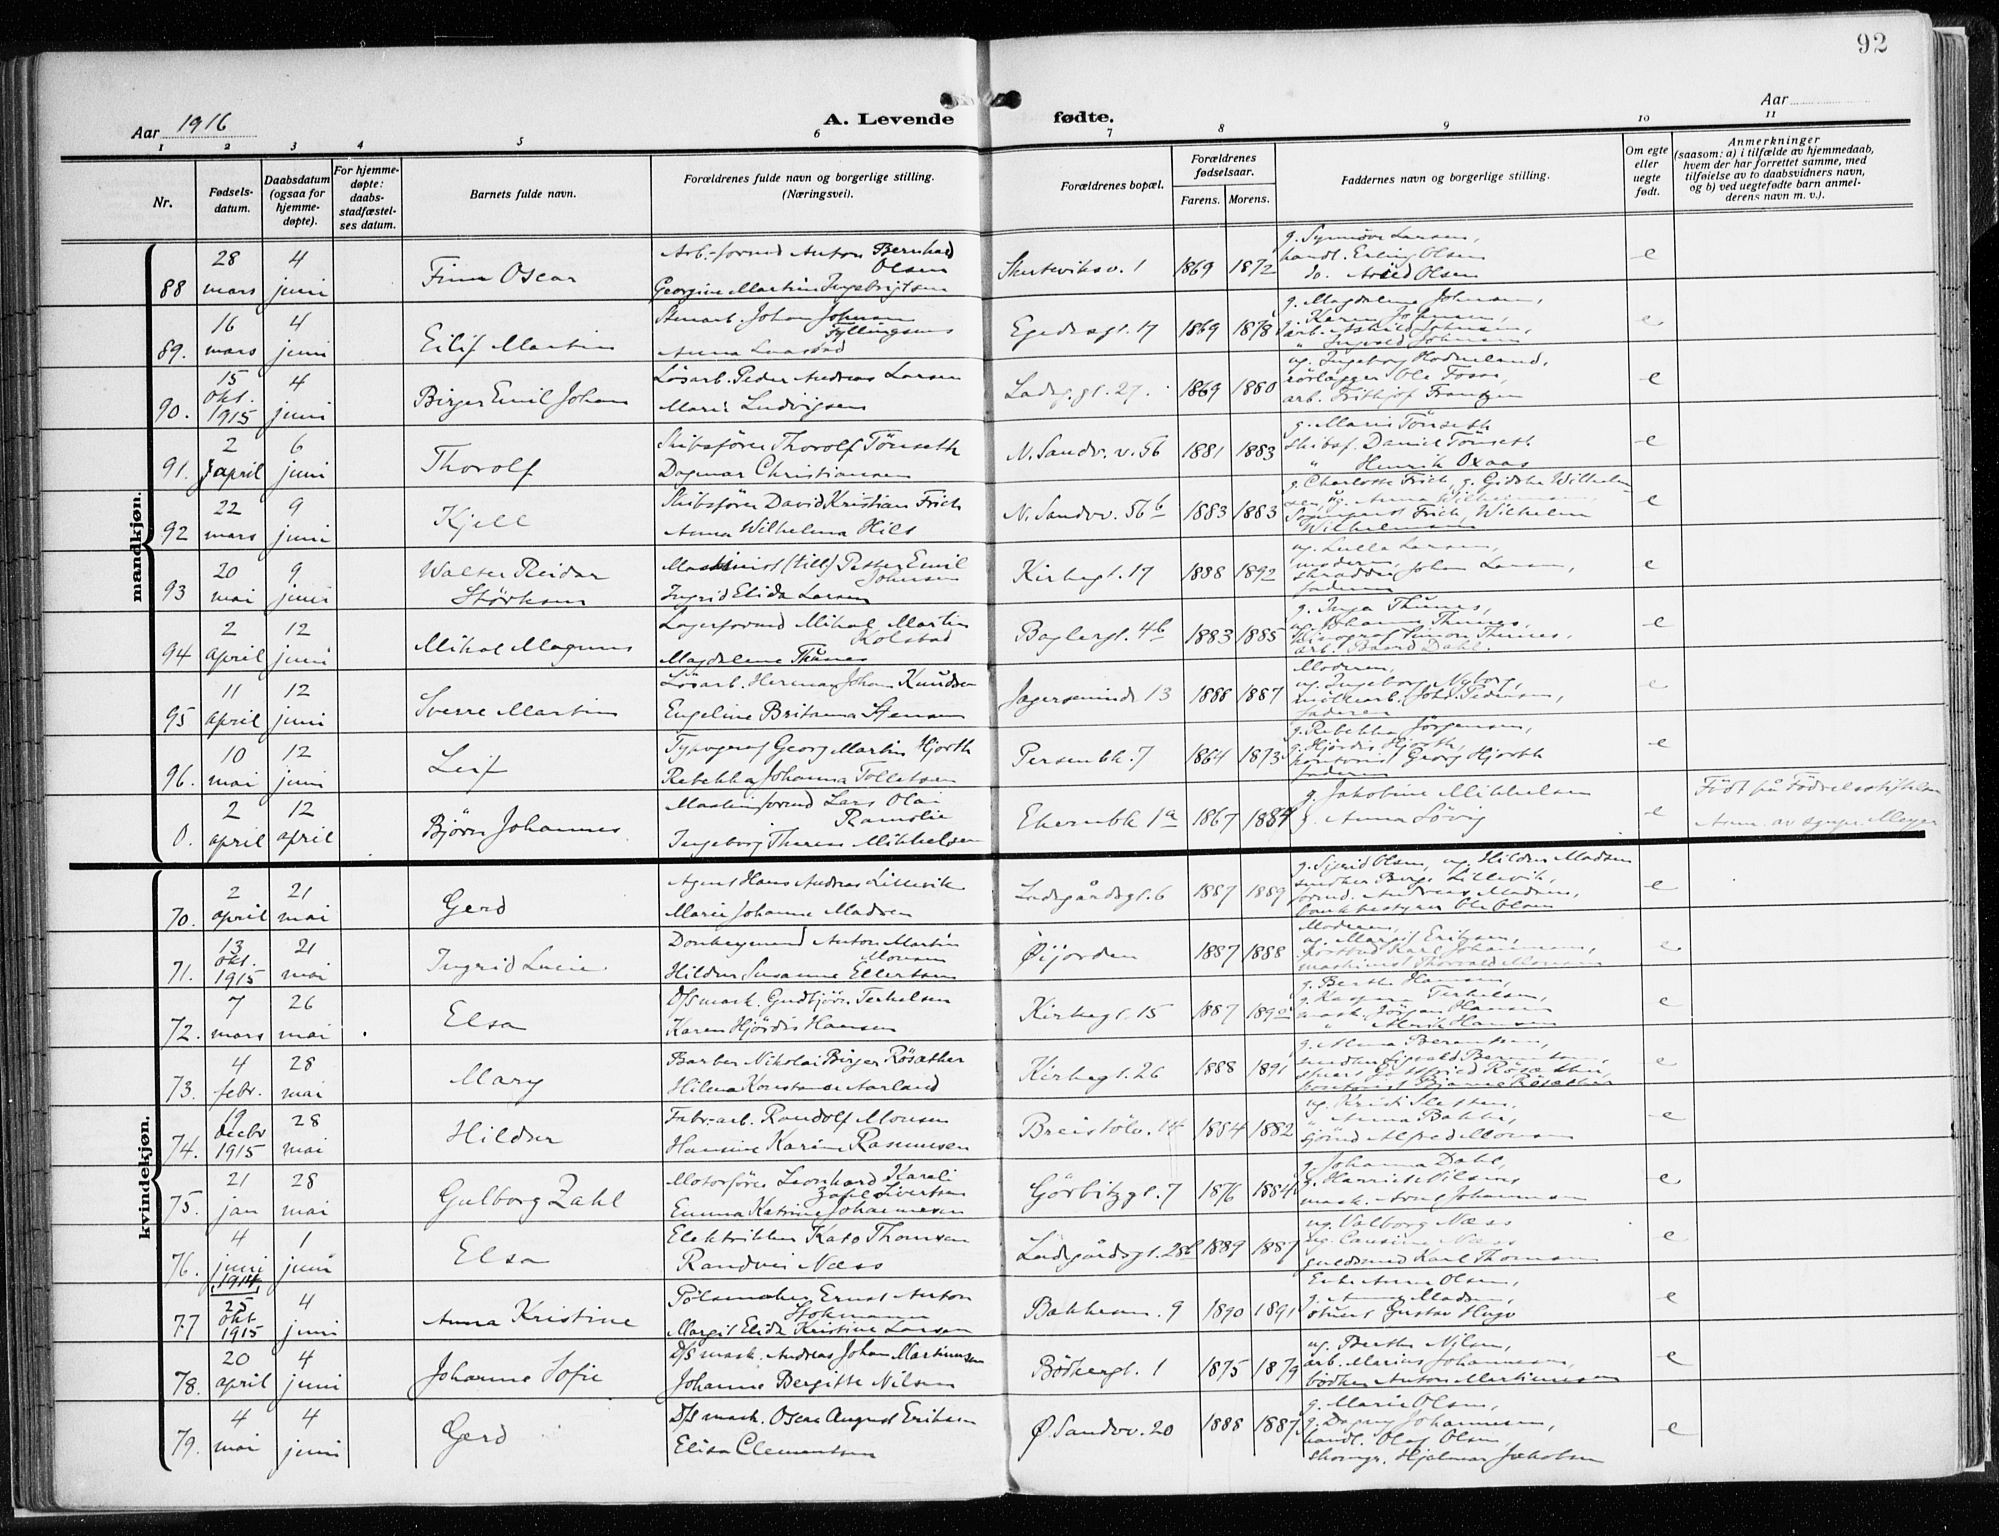 92
Aar 1916
A. Levende fødte.
Aar
1 2 3 4 5 6 7 8 9 10 11
Nr.
Fødsels-
datum.
Daabsdatum
(ogsaa for
hjemme-
døpte).
For hjemme-
døpte:
daabs-
stadfæstel-
ses datum.
Barnets fulde navn.
Forældrenes fulde navn og borgerlige stilling.
(Næringsvei).
Forældrenes bopæl.
Forældrenes
fødselsaar.
Farens. Morens.
Faddernes navn og borgerlige stilling.
Om egte
eller
uegte
født.
Anmerkninger
(saasom: a) i tilfælde av hjemmedaab,
hvem der har forrettet samme, med
tilføielse av to daabsvidners navn,
og b) ved uegtefødte barn anmel-
derens navn m. v.).
mandkjøn.
88 28 mars 4 juni Finn Oscar
Arb.-formd Anton Bernhard
Olsen
Georgine Martine Ingebrigtsen
Skuteviksv. 1 1869 1872
g. Synnöve Larsen,
handl. Erling Olsen
do. Arvid Olsen
e
89. 16 mars 4 juni Eilif Martin
Stenarb. Johan Johnsen
Fyllingsnes
Anna
Egedesgt. 17 1869 1878
g. Magdalene Johnsen,
Karen Johnsen,
arb. Johnsen,
" Ingvald Johnsen
e
90. 15 okt. 1915 4 juni Birger Emil Johan
Løsarb. Peder Andreas Larsen
Marie Ludvigsen
Ladeg.gt. 27. 1869 1880
ug. Ingeborg Hodneland,
rörlægger Ole Fosse,
arb. Frithjof Frantzen
e
91. 2 april 6 juni Thorolf
Skibsfører Thorolf Tönseth
Dagmar Christiansen
N. Sandv. v. 56 1881 1883
g. Marie Tönseth
Skibsf. Daniel Tönseth
" Henrik Oxaas
e
92 22 mars 9 juni Kjell
Skibsfører David Kristian Frich
Anna Wilhelmina Hils
N. Sandvv. 56b 1883 1883
g. Charlotte Frich, g. Gidske Wilhelm-
sen, ug. Anna Wilhelmsen
Frich, Wilhelm
Wilhelmsen
e
93 20 mai 9 juni Walter Reidar
Størksen
Maskinist (till) Petter Emil
Johnsen
Ingrid Elida Larsen
Kirkegt. 17 1888 1892
ug. Lulla Larsen,
moderen,
skrædder Johan Larsen,
faderen
e
94 2 april 12 juni Mikal Magnus
Lagerformd Mikal Martin
Kolstad
Magdalene Thunes
Baglergt. 4b 1883 1885
g. Inga Thunes,
ug. Johanne Thunes,
Simon Thunes,
arb. Baard Dahl.
e
95 11 april 12 juni Sverre Martin
Løsarb. Herman Johan Knudsen
Engeline Britanna Stensen
Jægersmindet 13 1888 1887
Moderen,
ug. Ingeborg Nyborg,
möllearb. Joh. Pedersen,
faderen
e
96. 10 mai 12 juni Leif
Typograf Georg Martin Hjorth
Rebekka Johanna Tolletsen
Persenbk. 7 1864 1873
g. Rebekka Jörgensen,
g. Hjördis Hjorth,
kontorist Georg Hjorth
faderen
e
0. 2 april 12 april Bjørn Johannes
Maskinformd Lars Olai
Ramslie
Ingeborg Therese Mikkelsen
Ekernbk 1a 1867 1884
g. Jakobine Mikkelsen
g. Anna Lövig
e
Født på Fødselsstiftelsen
Anm. av sognepr. Meyer
kvindekjøn.
70. 2 april 21 mai Gerd
Agent Hans Andreas Lillevik
Marie Johanne Madsen
Ladegårdsgt. 6 1887 1889
g. Sigrid Olsen, ug. Hildur Madsen
snedker Berge Lillevik,
formd. Andreas Madsen,
bankbestyrer Ole Olsen
e
71. 13 okt. 1915 21 mai Ingrid Lucie
Donkeymand Anton Martin
Monsen
Hildur Susanne Ellertsen
Øijorden 1887 1888
Moderen,
ug. Margit Eriksen,
postbud Karl Johannessen,
maskinist Thorvald Monsen
e
72. 7 mars 26 mai Elsa
D/S mask. Gudbjörn Terkelsen
Karen Hjördis Hansen
Kirkegt. 15 1887 1892
g. Berthe Hansen,
g. Kaspara Terkelsen,
mask. Jørgen Hansen
" Alrik Hansen
e
73. 4 febr. 28 mai Mary
Barber Nikolai Birger Røsæther
Hilma Konstanse Aarland
Kirkegt. 26 1888 1891
g. Alma Berentsen,
snedker Sigvald Berentsen,
Gottfried Røsæther,
kontorist Bjarne Røsæther
e
74. 19 decbr 1915 28 mai Hildur
Fabr.-arb. Randolf Monsen
Hansine Karine Rasmussen
Breistölv. 14 1884 1882
ug. Kristi Sletten,
" Anna Bakke,
sjömd Alfred Monsen
e
75. 21 jan 28 mai Gulborg Zahl
Motorfører Leonhard Kareli
Zahl Sivertsen
Emma Katrine Johannesen
Görbitzgt. 7 1876 1884
g. Johanna Dahl,
g. Harriet Nilsen
mask. Arne Johannesen
e
76. 4 juni 1914 1 juni Elsa
Elektriker Kato Thomsen
Randvei Næss
Ladegårdsgt. 28b 1889 1887
ug. Valborg Næss
ug. Næss
guldsmed Karl Thomsen
e
77 25 okt 1915 4 juni Anna Kristine
Pølsemaker Ernst Anton
Stokmann
Margit Elida Kristine Larsen
Bakkesm. 9 1890 1891
Enke Anne Olsen,
g. Anna Madsen,
stuert Gustav Hugo
e
78. 20 april 4 juni Johanne Sofie
D/S mask. Andreas Johan Martinusen
Johanne Bergitte Nilsen
Bødkergt. 1 1875 1879
ug. Berthe Nilsen,
arb. Marius Johannesen,
bødker Anton Martinusen
e
79. 4 mai 4 juni Gerd
D/S mask. Oscar August Eriksen
Elisa Clementsen
Ø Sandvv. 20 1888 1887
g. Marie Olsen,
g. Dagny Johannesen,
handl. Olaf Olsen,
skomgr. Hjelmar Jakobsen
e